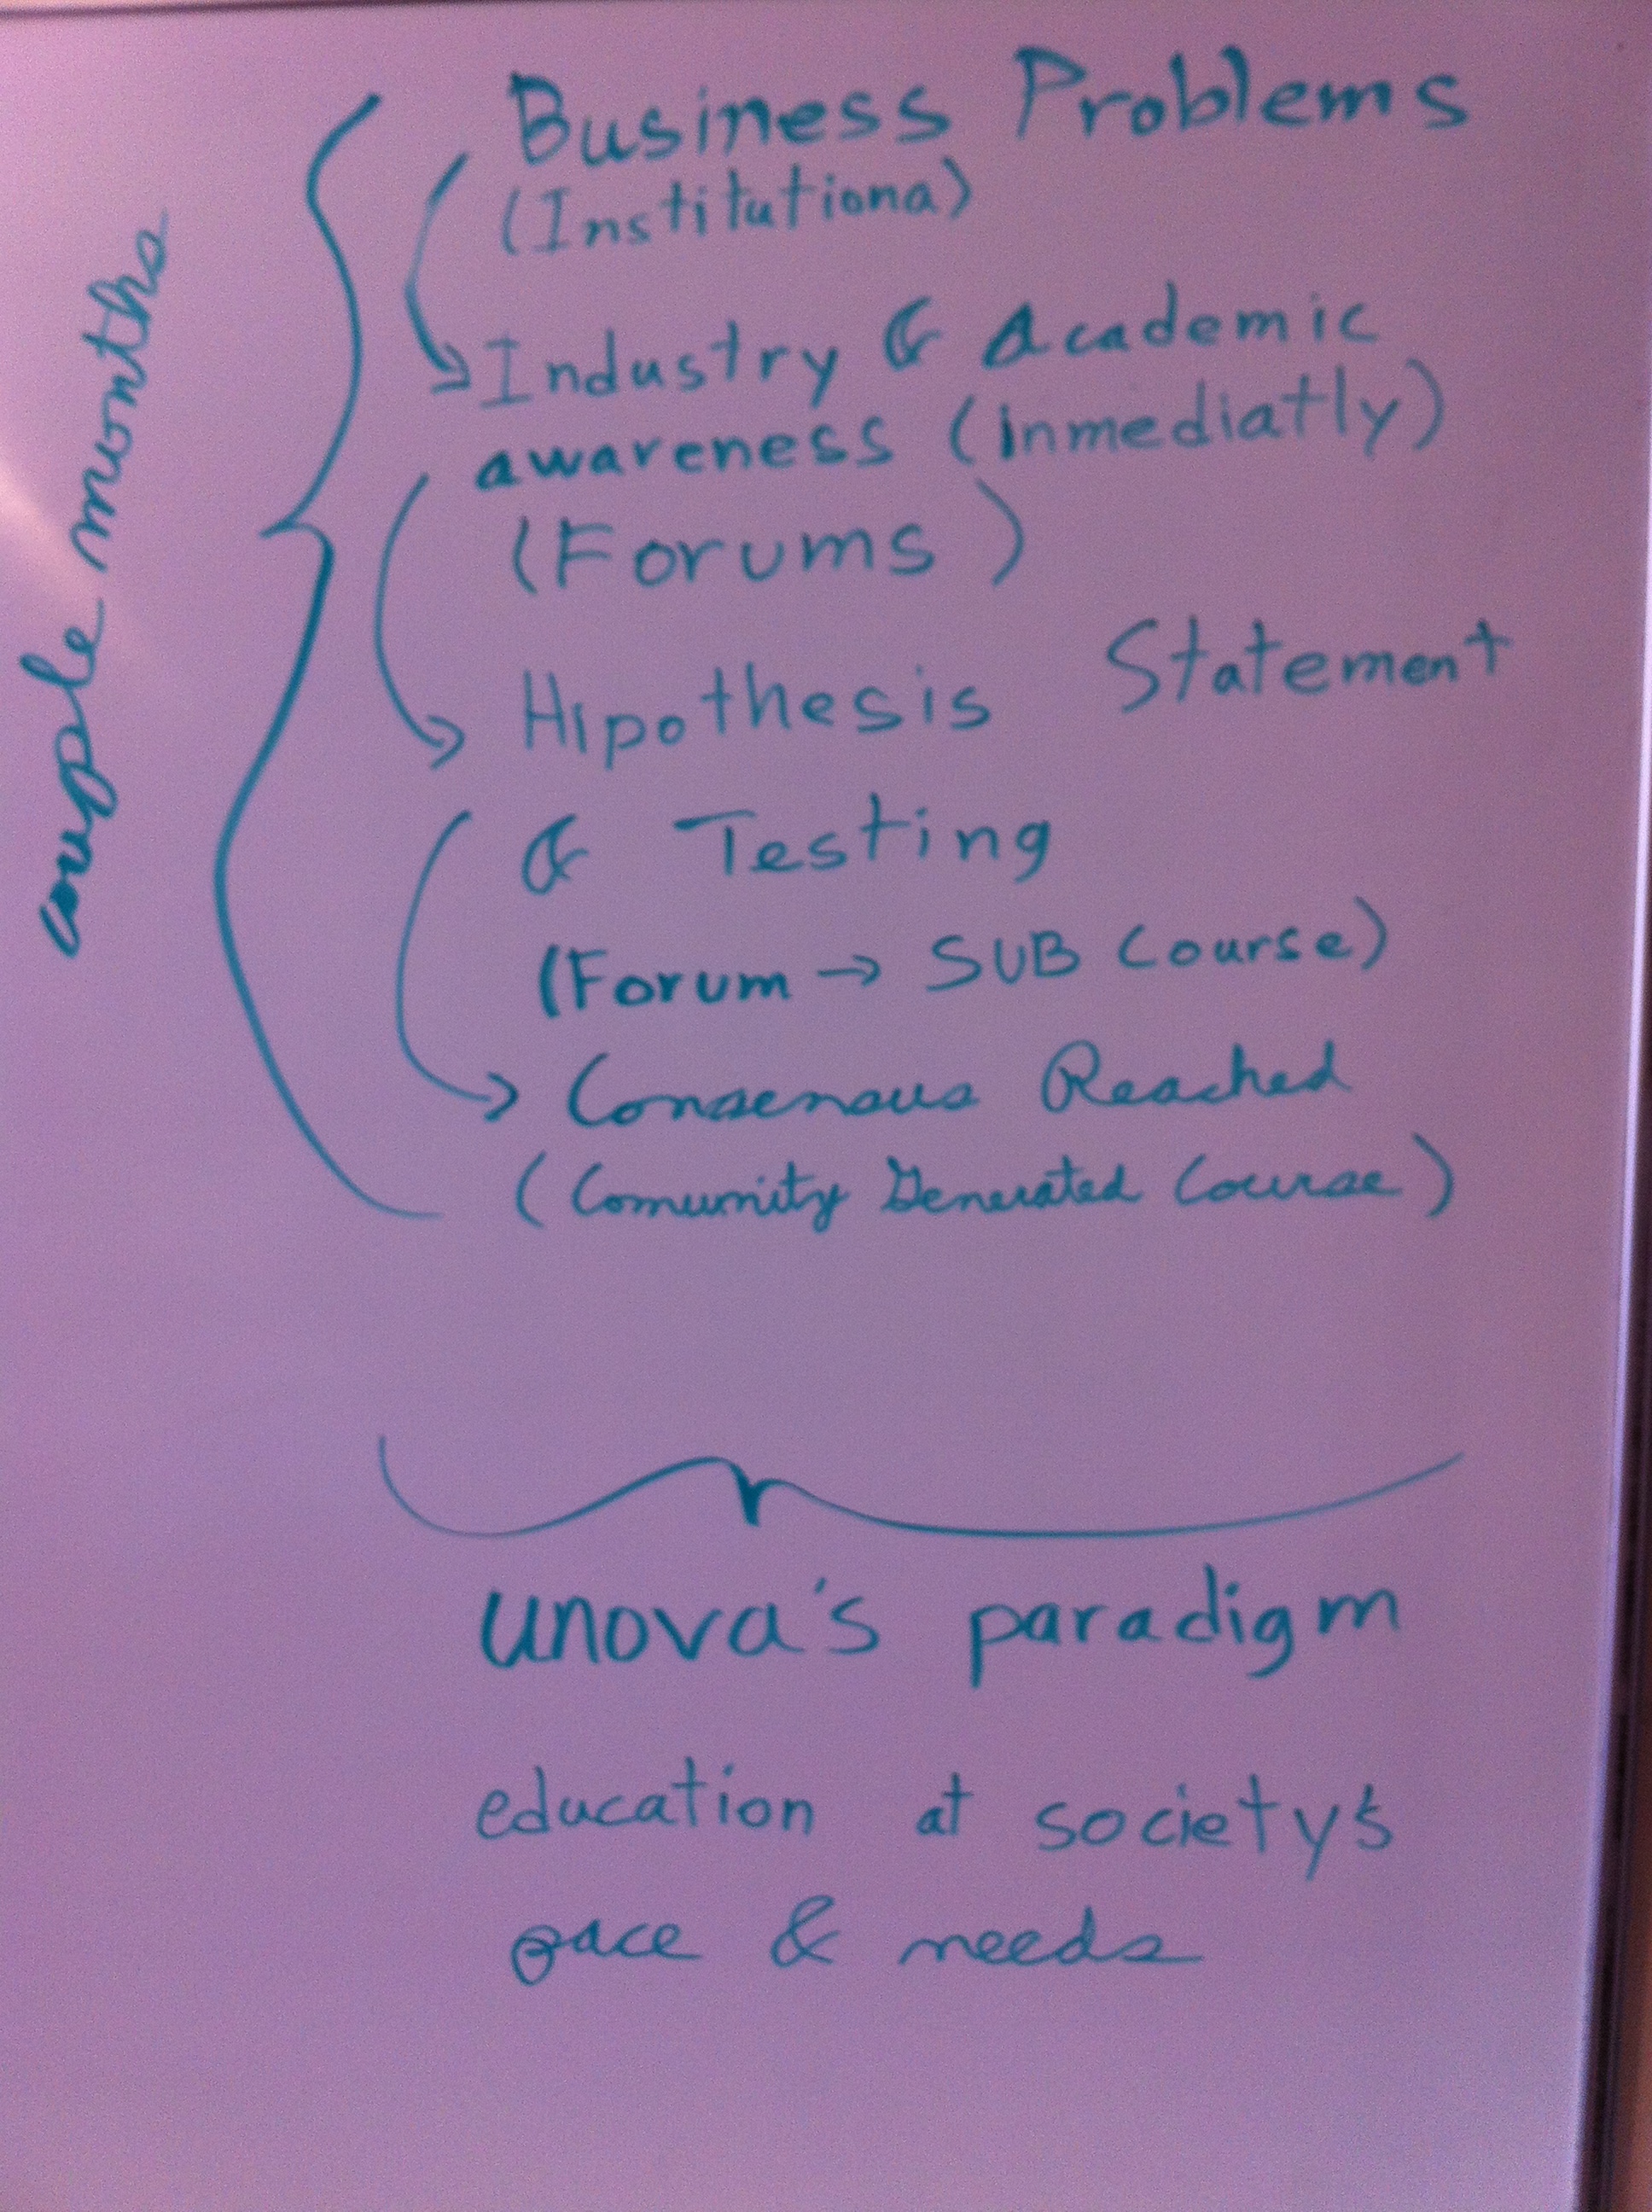 couple months
Business Problems
(Institutiona)
Industry & Academic
awareness (inmediatly)
(Forums)
Hipothesis Statement
& Testing
(Forum → SUB Course)
Consensus Reached
(Comunity Generated Course)
unova's paradigm
education at society's
pace & needs